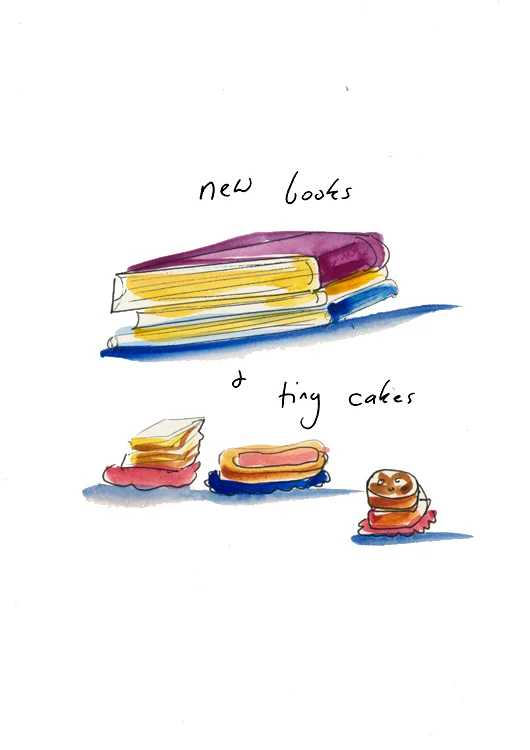 new books
&
tiny cakes